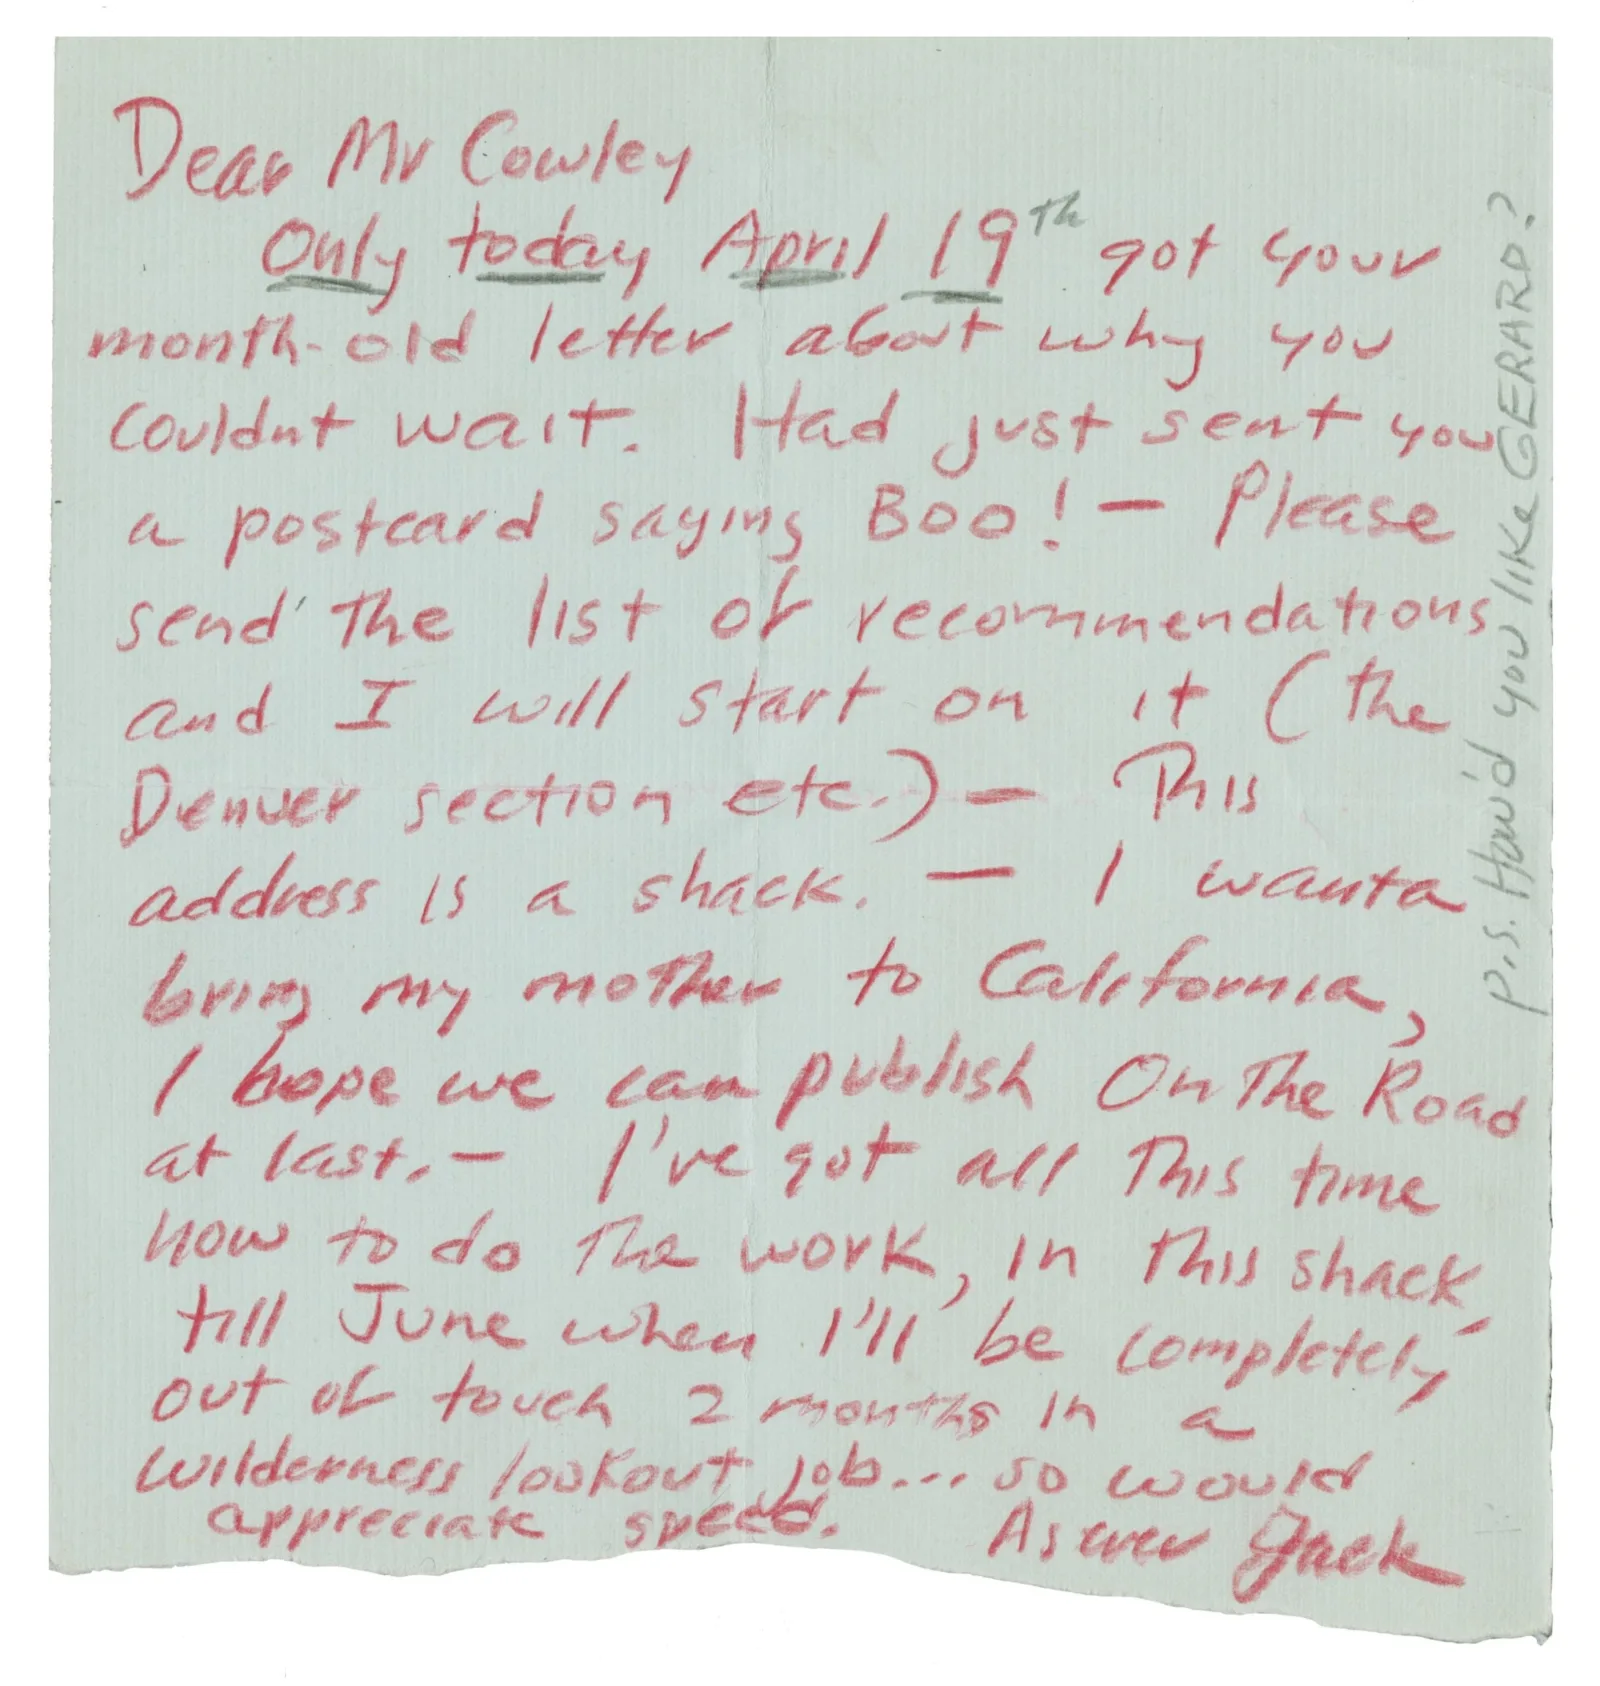 Dear Mr Cowley
Only today April 19th got your
month-old letter about why you
couldnt wait. Had just sent you
a postcard saying Boo! — Please
send the list of recommendations
and I will start on it (the
Denver section etc.) — This
address is a shack. — I wanta
bring my mother to California,
I hope we can publish On The Road
at last. — I've got all this time
now to do the work, in this shack,
till June when I'll be completely
out of touch 2 months in a
wilderness lookout job... so would
appreciate speed. As ever Jack
P.S. How'd you like GERARD?